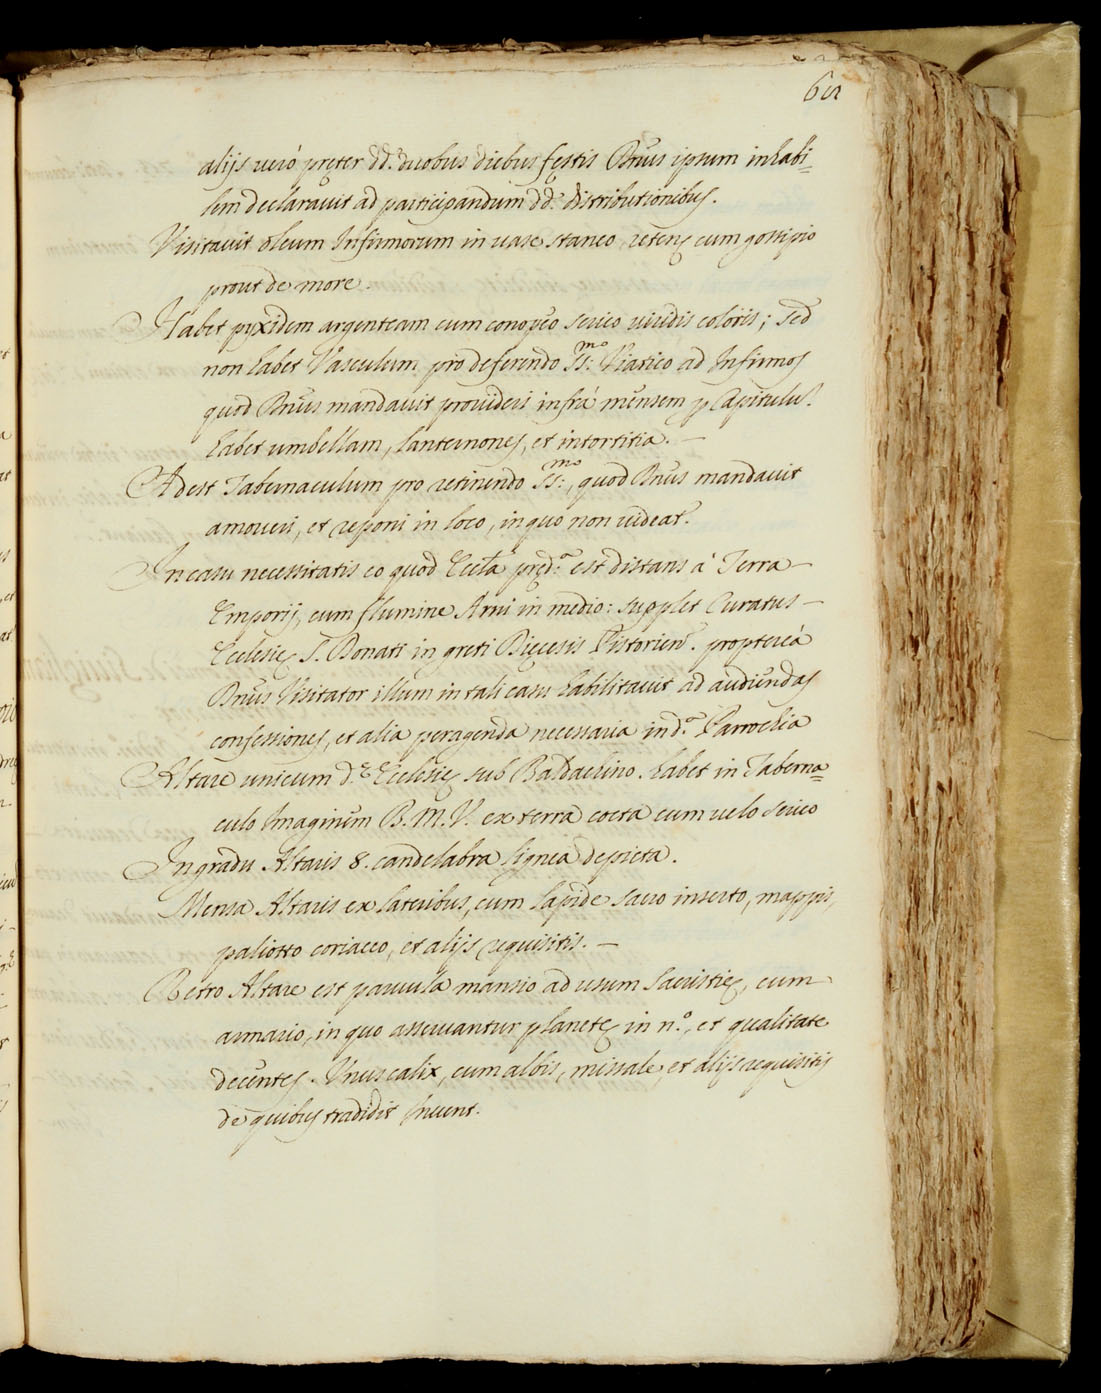 62
alijs verò preter dd. duobus diebus festis Dnūs ipsum inhabi=
lem declaravit ad participandum dd. distributionibus.
Visitavit oleum Infirmorum in vase staneo, retens cum gossipio
prout de more.
Habet pyxidem argenteam cum conopeo serico viridis coloris; sed
non habet Vasculum pro deferendo SS:mo Viatico ad Infirmos
quod Dnūs mandavit provideri infrà mensem p Capitulū.
habet umbellam, lanternones, et intortitia. —
Adest Tabernaculum pro retinendo SS:mo, quod Dnūs mandavit
amoveri, et reponi in loco, in quo non videat.
In casu necessitatis eo quod Eccla pred.a est distans à Terra —
Emporij, cum flumine Arni in medio: supplet Curatus —
Ecclesie S. Donati in greti Diecesis Pistorien. propterèa
Dnūs Visitator illum in tali casu habilitavit ad audiendas
confessiones, et alia peragenda necessaria in d.a Parrochia
Altare unicum d.e Ecclesie sub Baldachino. habet in Taberna=
culo Imaginem B.M.V. ex terra cocta cum velo serico
In gradu Altaris 8. candelabra lignea depicta.
Mensa Altaris ex lateribus, cum lapide sacro inserto, mappis,
paliotto coriaceo, et alijs requisitis. —
Retro Altare est parvula mansio ad usum Sacristie, cum
armario, in quo asservantur planete in n.o, et qualitate
decentes. Unus calix, cum albis, missale, et alijs requisitis
de quibus tradidit Invent.